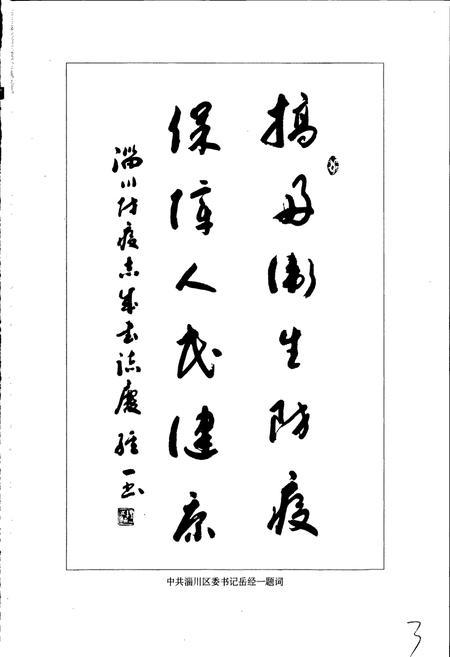 搞好衛生防疫
保障人民健康
淄川防疫志成书誌慶
经一书
中共淄川区委书记岳经一题词
3